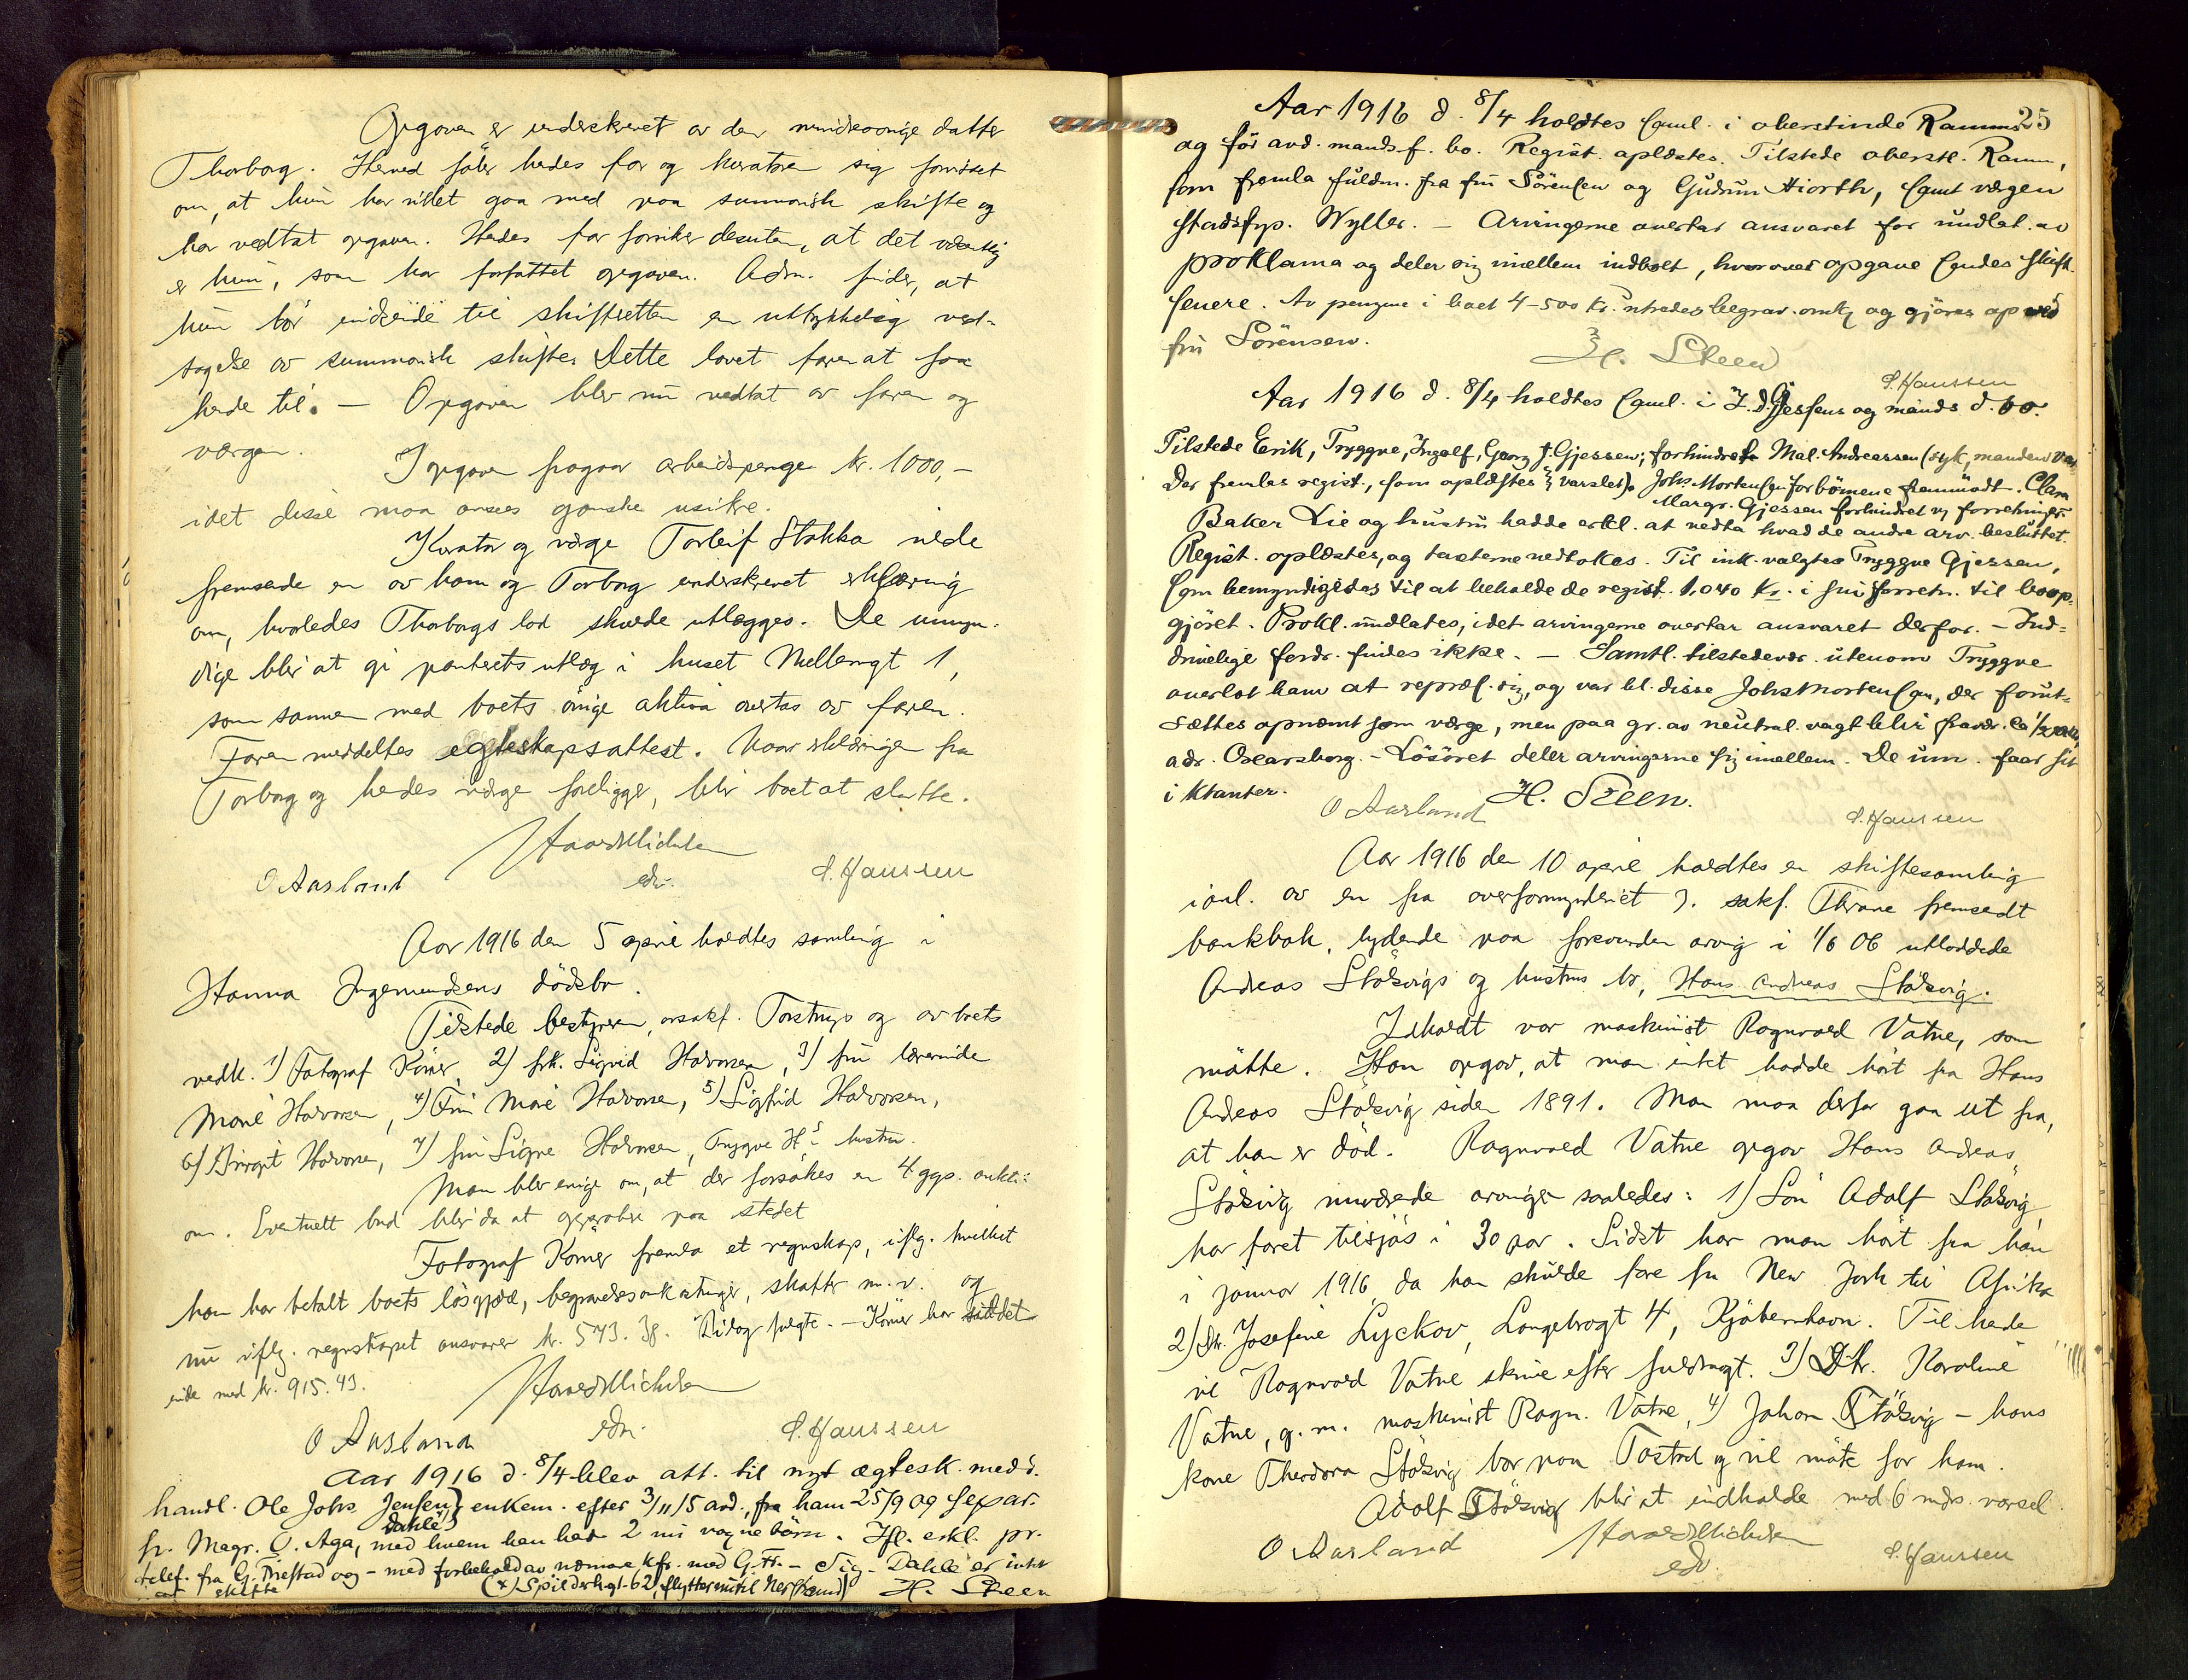 Opgaven er underskrevet av den mindreaarige datter
Thorborg. Herved föler hendes far og kurator sig forvisset
om, at hun har villet gaa med paa summarisk skifte og
har vedtat opgaven. Hendes far forsikrer desuten, at det væsentlig
er hun, som har forfattet opgaven. Adm. finder, at
hun bör indsende til skifteretten en uttrykkelig ved-
tagelse av summarisk skifte. Dette lovet faren at faa
hende til. — Opgaven blev nu vedtat av faren og
værgen.
I opgaven fragaar arbeidspenge kr. 1000,-
idet disse maa ansees ganske usikre.
Kurator og værge Torleif Stokka vilde
fremsende en av ham og Torborg underskrevet erklæring
om, hvorledes Thorborgs lod skulde utlægges. De umyn-
dige blir at gi panteretsutlæg i huset Mellemgt 1,
som sammen med boets övrige aktiva overtas av faren.
Faren meddeltes egteskapsattest. Naar erklæringen fra
Torborg og hendes værge foreligger, blir boet at slutte.
O Aarland
edv.
S. Hanssen
Aar 1916 den 5 april holdtes samling i
Hanna Ingemundsens dödsbo.
Tilstede bestyreren, orsakf. Torstrup og av boets
vedk. 1) Fotograf Körner, 2) frk. Sigrid Halvorsen, 3) fru lærerinde
Marie Halvorsen, 4) Fru Marie Halvorsen, 5) Sigfrid Halvorsen,
6) Birgit Halvorsen, 7) fru Signe Halvorsen, Trygve H's hustru.
Man blev enige om, at der forsökes en 4 ggs. auktion
om. Eventuelt bud blir da at approbere paa stedet
Fotograf Körner fremla et regnskap, iflg. hvilket
han har betalt boets lösgjæld, begravelsesomkostninger, skatter m.v. og
nu iflg. regnskapet ansvarer kr. 573.38. Bilag fulgte. — Körner har siddet
inde med kr. 915.43.
O Aarland
edv.
S. Hanssen
Aar 1916 d. 8/4 blev att. til nyt ægtesk. medd.
handl. Ole Johs. Jensen enkem. efter 3/11 15 avd., fra ham 25/9 09 separ.
Dahle
fr. Magr. O. Aga, med hvem han had 2 nu voxne börn. Hfl. erkl. pr.
telef. fra G. Tiestad og - med forbehold av nærmere kfr. med G.H. - Sig. Dahle er intet
at skifte (x) Spilderhgt. 62, flytter nu til Nerstrand) H. Steen
25
Aar 1916 d. 8/4 holdtes saml. i oberstinde Ramms
og för avd. mands f. bo. Regist. oplæstes. Tilstede oberstl. Ramm,
som fremla fuldm. fra fru Sörensen og Gudrun Hiorth, samt værgen
stadsfys. Wyller. — Arvingerne overtar ansvaret for undlat. av
proklama og deler sig imellem indbolt, hvorover opgave sendes skift.
senere. Av pengene i boet 4-500 kr. utredes begrav. omk. og gjöres op ved
fru Sörensen.
H. Steen
S. Hanssen
Aar 1916 d. 8/4 holdtes saml. i I. d. Gjessens og mands d. bo.
Tilstede Erik, Tryggve, Ingolf, Georg J. Gjessen; forhindret Mal. Andreassen (syk, manden var
Der fremlas regist., som oplæstes varslet). Johs Mortensen for börnene fremmödt. Clara
Margr. Gjessen forhindret v. forretninger.
Baker Lie og hustru hadde erkl. at vedta hvad de andre arv. besluttet.
Regist. oplæstes, og taxterne vedtokes. Til ink. valgtes Tryggve Gjessen,
som bemyndigedes til at beholde de regist. 1,040 kr. i sin forretn. til boop-
gjöret. Prokl. undlates, idet arvingerne overtar ansvaret derfor. — Ind-
drivelige fordr. findes ikke. — Samtl. tilstedevær. utenom Tryggve
overlot ham at repræs. sig, og var bl. disse Johs Mortensen, der forut-
sættes opnævnt som værge, men paa gr. av neutral. vagt blir fravær. ca 1/2 aar,
adr. Oscarsborg. — Lösöret deler arvingerne sig imellem. De um. faar sit
i ktanter.
O Aarland H. Steen.
S. Hanssen
Aar 1916 den 10 april holdtes en skiftesamling
i anl. av en fra overformynderiet v. sakf. Thrane fremsendt
bankbok, lydende paa forsvunden arving i 1/6 06 utloddede
Andreas Stölsvigs og hustrus bo, Hans Andreas Stölsvig.
Indkaldt var maskinist Ragnvald Vatne, som
mötte. Han opgav, at man intet hadde hört fra Hans
Andreas Stölsvig siden 1891. Man maa derfor gaa ut fra,
at han er död. Ragnvald Vatne opgav Hans Andreas
Stölsvig nuværende arvinger saaledes: 1) Sön Adolf Stölsvig,
har faret tilsjös i 30 aar. Sidst har man hört fra ham
i januar 1916, da han skulde fare fra New York til Afrika
2) Dtr. Josefine Lyckov, Langebrogt 4, Kjöbenhavn. Til hende
vil Ragnvald Vatne skrive efter fuldmagt. 3) Dtr. Karoline
Vatne, g. m. maskinist Ragn. Vatne, 4) Johan Stölsvig - hans
kone Theodora Stölsvig bor paa Tasta og vil möte for ham.
Adolf Stölsvig blir at indkalde med 6 mdrs. varsel.
O Aarland
edv.
S. Hanssen